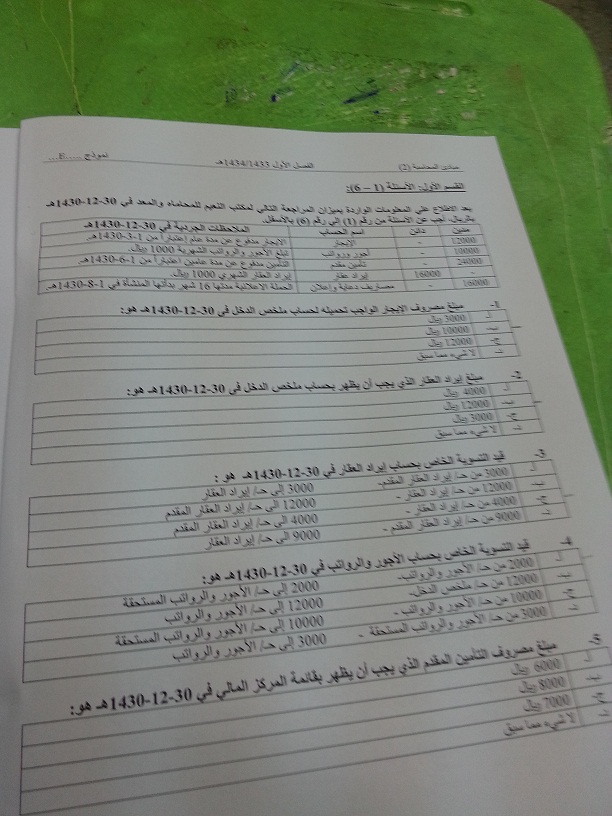 مبادئ المحاسبة (2) الفصل الأول 1434/1433هـ نموذج .....E...
القسم الأول: الأسئلة (1 – 6):
بعد الاطلاع على المعلومات الواردة بميزان المراجعة التالي لمكتب النعيم للمحاماه والمعد في 30-12-1430هـ
بالريال، أجب عن الأسئلة من رقم (1) الى رقم (6) بالأسفل.
مدين دائن اسم الحساب الملاحظات الجردية في 30-12-1430هـ
12000 - الإيجار الايجار مدفوع عن مدة عام إعتباراً من 1-3-1430هـ.
10000 - أجور ورواتب تبلغ الأجور والرواتب الشهرية 1000 ريال.
24000 - تأمين مقدم التأمين مدفوع عن مدة عامين إعتباراً من 1-6-1430هـ
- 16000 إيراد عقار إيراد العقار الشهري 1000 ريال.
16000 - مصاريف دعاية وإعلان الحملة الاعلانية مدتها 16 شهر بدأتها المنشأة في 1-8-1430هـ.
1- مبلغ مصروف الإيجار الواجب تحميله لحساب ملخص الدخل في 30-12-1430هـ هو:
أ- 3000 ريال
ب- 10000 ريال
ج- 12000 ريال
د- لا شيء مما سبق
2- مبلغ إيراد العقار الذي يجب أن يظهر بحساب ملخص الدخل في 30-12-1430هـ هو:
أ- 4000 ريال
ب- 12000 ريال
ج- 3000 ريال
د- لا شيء مما سبق
3- قيد التسوية الخاص بحساب إيراد العقار في 30-12-1430هـ هو :
أ- 3000 من حـ/ إيراد العقار المقدم- 3000 إلى حـ/ إيراد العقار
ب- 12000 من حـ/ إيراد العقار - 12000 إلى حـ/ إيراد العقار المقدم
ج- 4000 من حـ/ إيراد العقار - 4000 الى حـ/ إيراد العقار المقدم
د- 9000 من حـ/ إيراد العقار المقدم - 9000 الى حـ/ إيراد العقار
4- قيد التسوية الخاص بحساب الأجور والرواتب في 30-12-1430هـ هو:
أ- 2000 من حـ/ الأجور والرواتب- 2000 إلى حـ/ الأجور والرواتب المستحقة
ب- 12000 من حـ/ ملخص الدخل- 12000 إلى حـ/ الأجور والرواتب
ج- 10000 من حـ/ الأجور والرواتب - 10000 إلى حـ/ الأجور والرواتب المستحقة
د- 3000 من حـ/ الأجور والرواتب المستحقة - 3000 إلى حـ/ الأجور والرواتب
5- مبلغ مصروف التأمين المقدم الذي يجب أن يظهر بقائمة المركز المالي في 30-12-1430هـ هو:
أ- 6000 ريال
ب- 8000 ريال
ج- 7000 ريال
د- لا شيء مما سبق